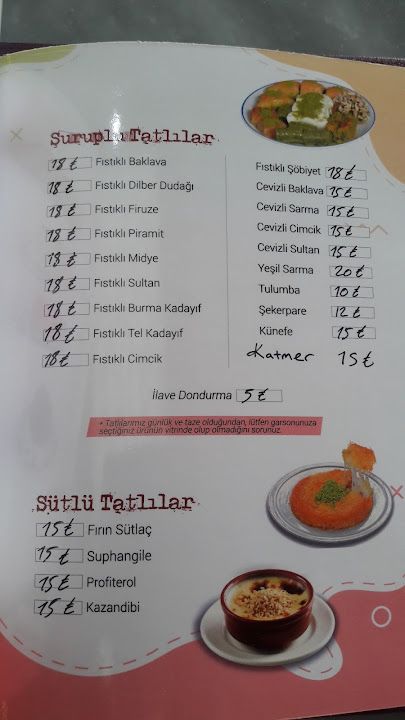 Şuruplu Tatlılar
18 ₺ Fıstıklı Baklava
18 ₺ Fıstıklı Dilber Dudağı
18 ₺ Fıstıklı Firuze
18 ₺ Fıstıklı Piramit
18 ₺ Fıstıklı Midye
18 ₺ Fıstıklı Sultan
18 ₺ Fıstıklı Burma Kadayıf
18 ₺ Fıstıklı Tel Kadayıf
18 ₺ Fıstıklı Cimcik
Fıstıklı Şöbiyet 18 ₺
Cevizli Baklava 15 ₺
Cevizli Sarma 15 ₺
Cevizli Cimcik 15 ₺
Cevizli Sultan 15 ₺
Yeşil Sarma 20 ₺
Tulumba 10 ₺
Şekerpare 12 ₺
Künefe 15 ₺
Katmer 15 ₺
İlave Dondurma 5 ₺
* Tatlılarımız günlük ve taze olduğundan, lütfen garsonunuza
seçtiğiniz ürünün vitrinde olup olmadığını sorunuz.
Sütlü Tatlılar
15 ₺ Fırın Sütlaç
15 ₺ Suphangile
15 ₺ Profiterol
15 ₺ Kazandibi